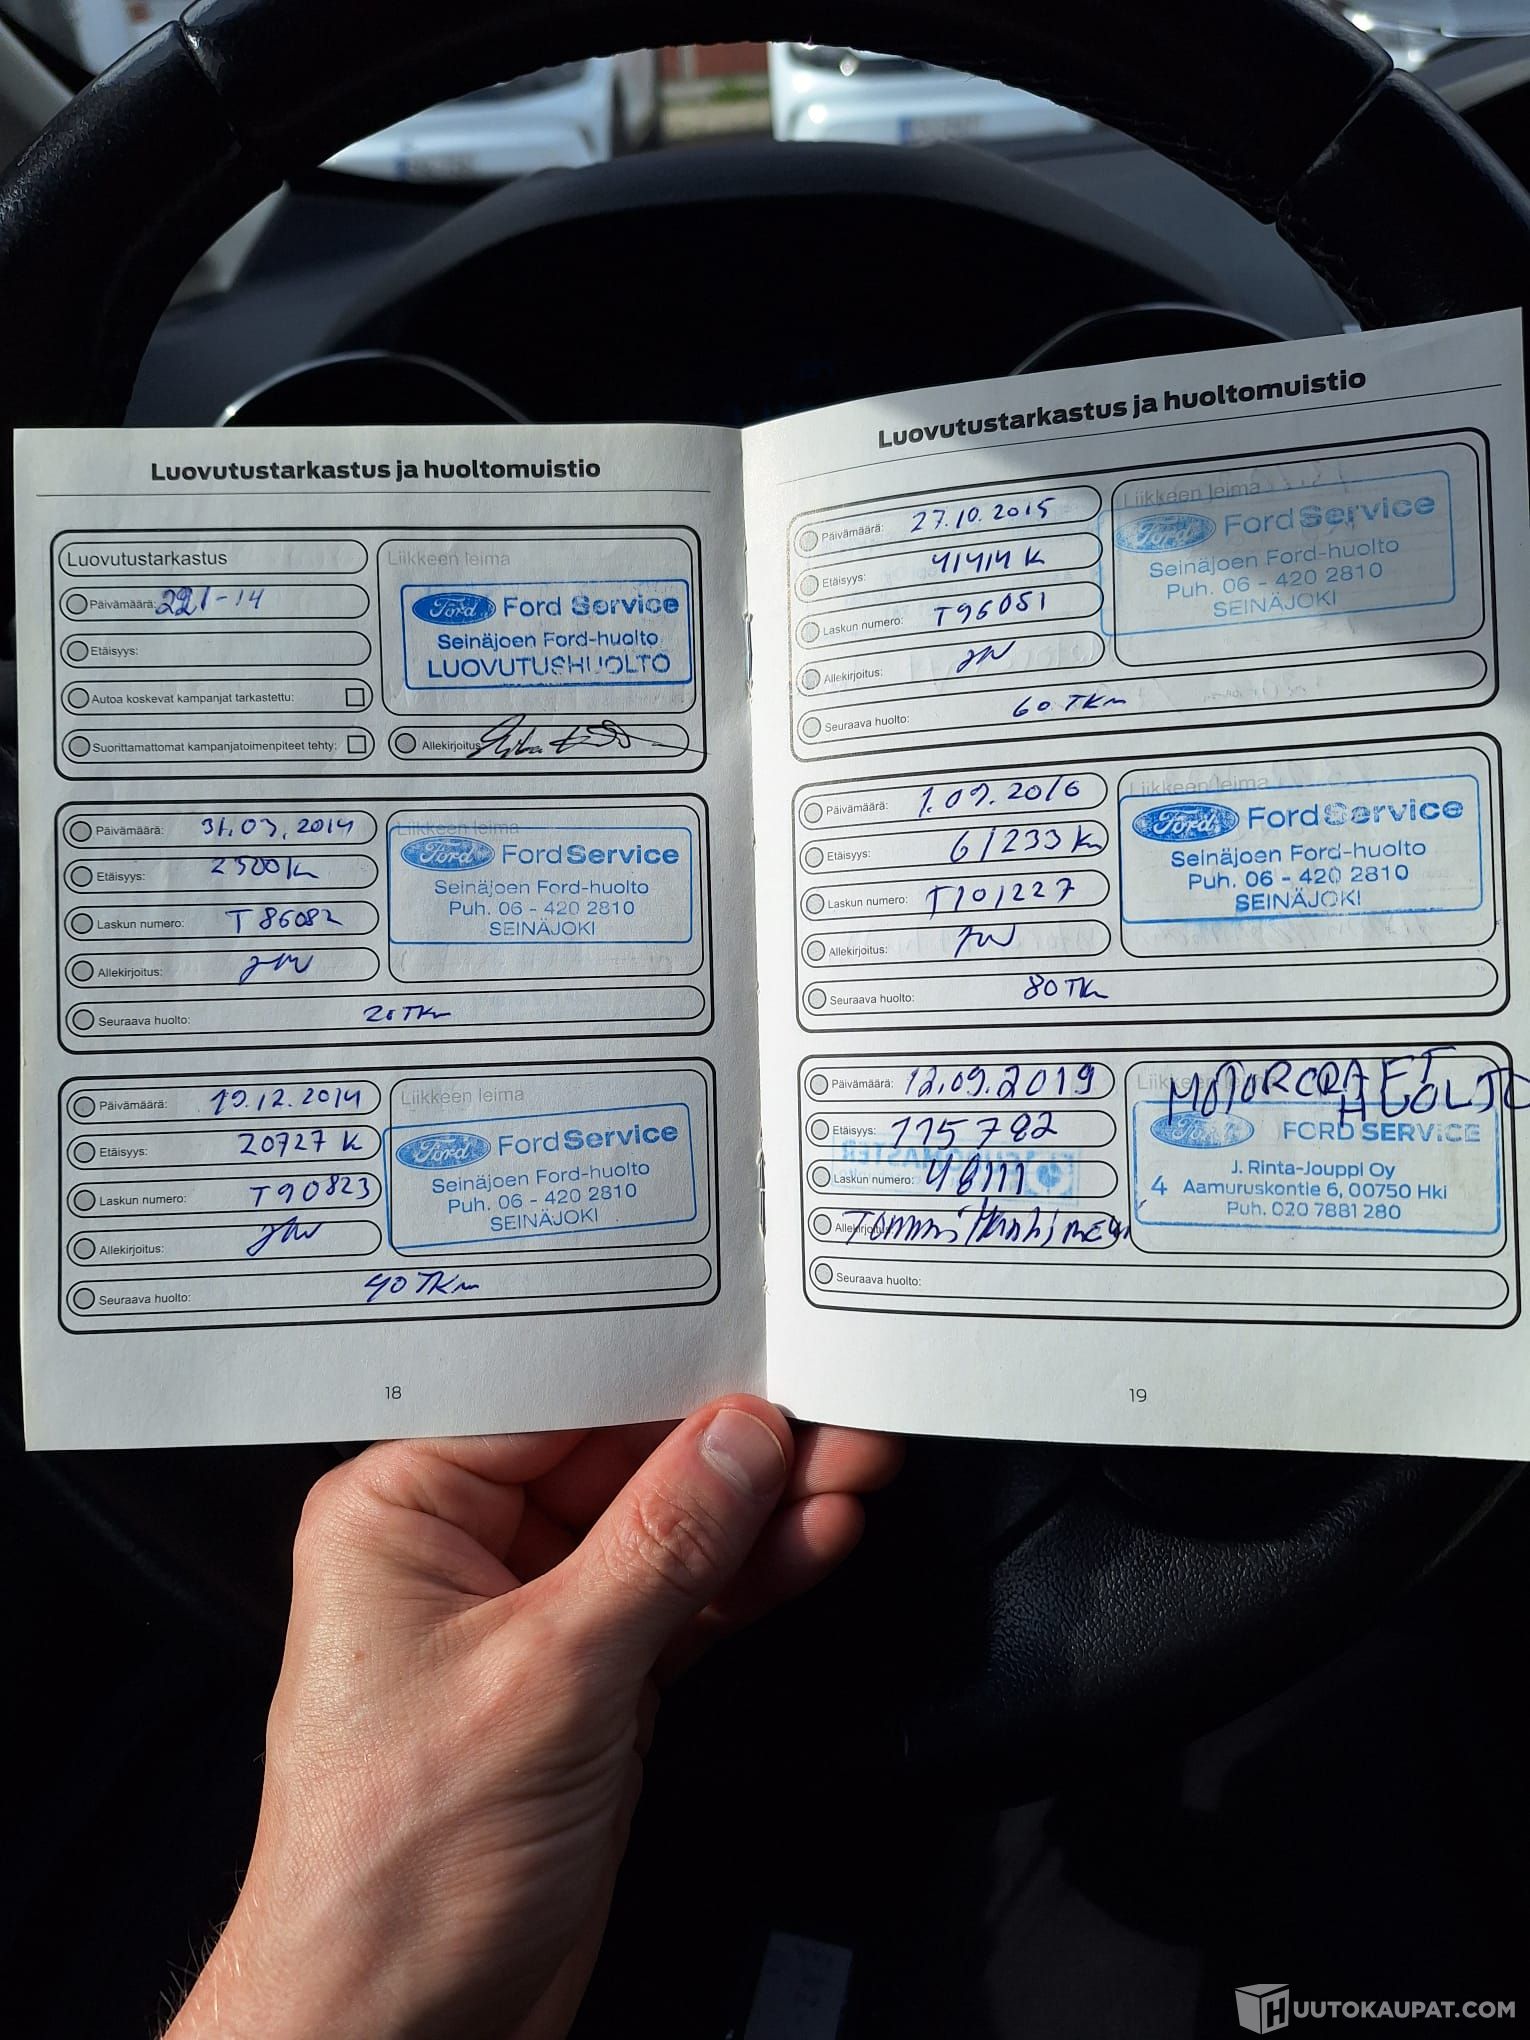 Luovutustarkastus ja huoltomuistio
Luovutustarkastus
Päivämäärä: 22.1-14
Etäisyys:
Autoa koskevat kampanjat tarkastettu:
Suorittamattomat kampanjatoimenpiteet tehty:
Liikkeen leima
Ford Ford Service
Seinäjoen Ford-huolto
LUOVUTUSHUOLTO
Allekirjoitus:
Päivämäärä: 31.03.2014
Etäisyys: 2500 k
Laskun numero: T 86082
Allekirjoitus: JW
Seuraava huolto: 20 TKm
Liikkeen leima
Ford FordService
Seinäjoen Ford-huolto
Puh. 06 - 420 2810
SEINÄJOKI
Päivämäärä: 19.12.2014
Etäisyys: 20727 k
Laskun numero: T90823
Allekirjoitus: JW
Seuraava huolto: 40 TKm
Liikkeen leima
Ford FordService
Seinäjoen Ford-huolto
Puh. 06 - 420 2810
SEINÄJOKI
18
Luovutustarkastus ja huoltomuistio
Päivämäärä: 27.10.2015
Etäisyys: 41414 k
Laskun numero: T96051
Allekirjoitus: JW
Seuraava huolto: 60 TKm
Liikkeen leima
Ford FordService
Seinäjoen Ford-huolto
Puh. 06 - 420 2810
SEINÄJOKI
Päivämäärä: 1.09.2016
Etäisyys: 61233 km
Laskun numero: T101227
Allekirjoitus: JW
Seuraava huolto: 80 TKm
Liikkeen leima
Ford FordService
Seinäjoen Ford-huolto
Puh. 06 - 420 2810
SEINÄJOKI
Päivämäärä: 12.09.2019
Etäisyys: 115782
Laskun numero: 48111
Allekirjoitus: Tommi
Seuraava huolto:
Liikkeen leima
MOTORCRAFT
HUOLTO
Ford FORD SERVICE
J. Rinta-Jouppi Oy
4 Aamuruskontie 6, 00750 Hki
Puh. 020 7881 280
19
HUUTOKAUPAT.COM